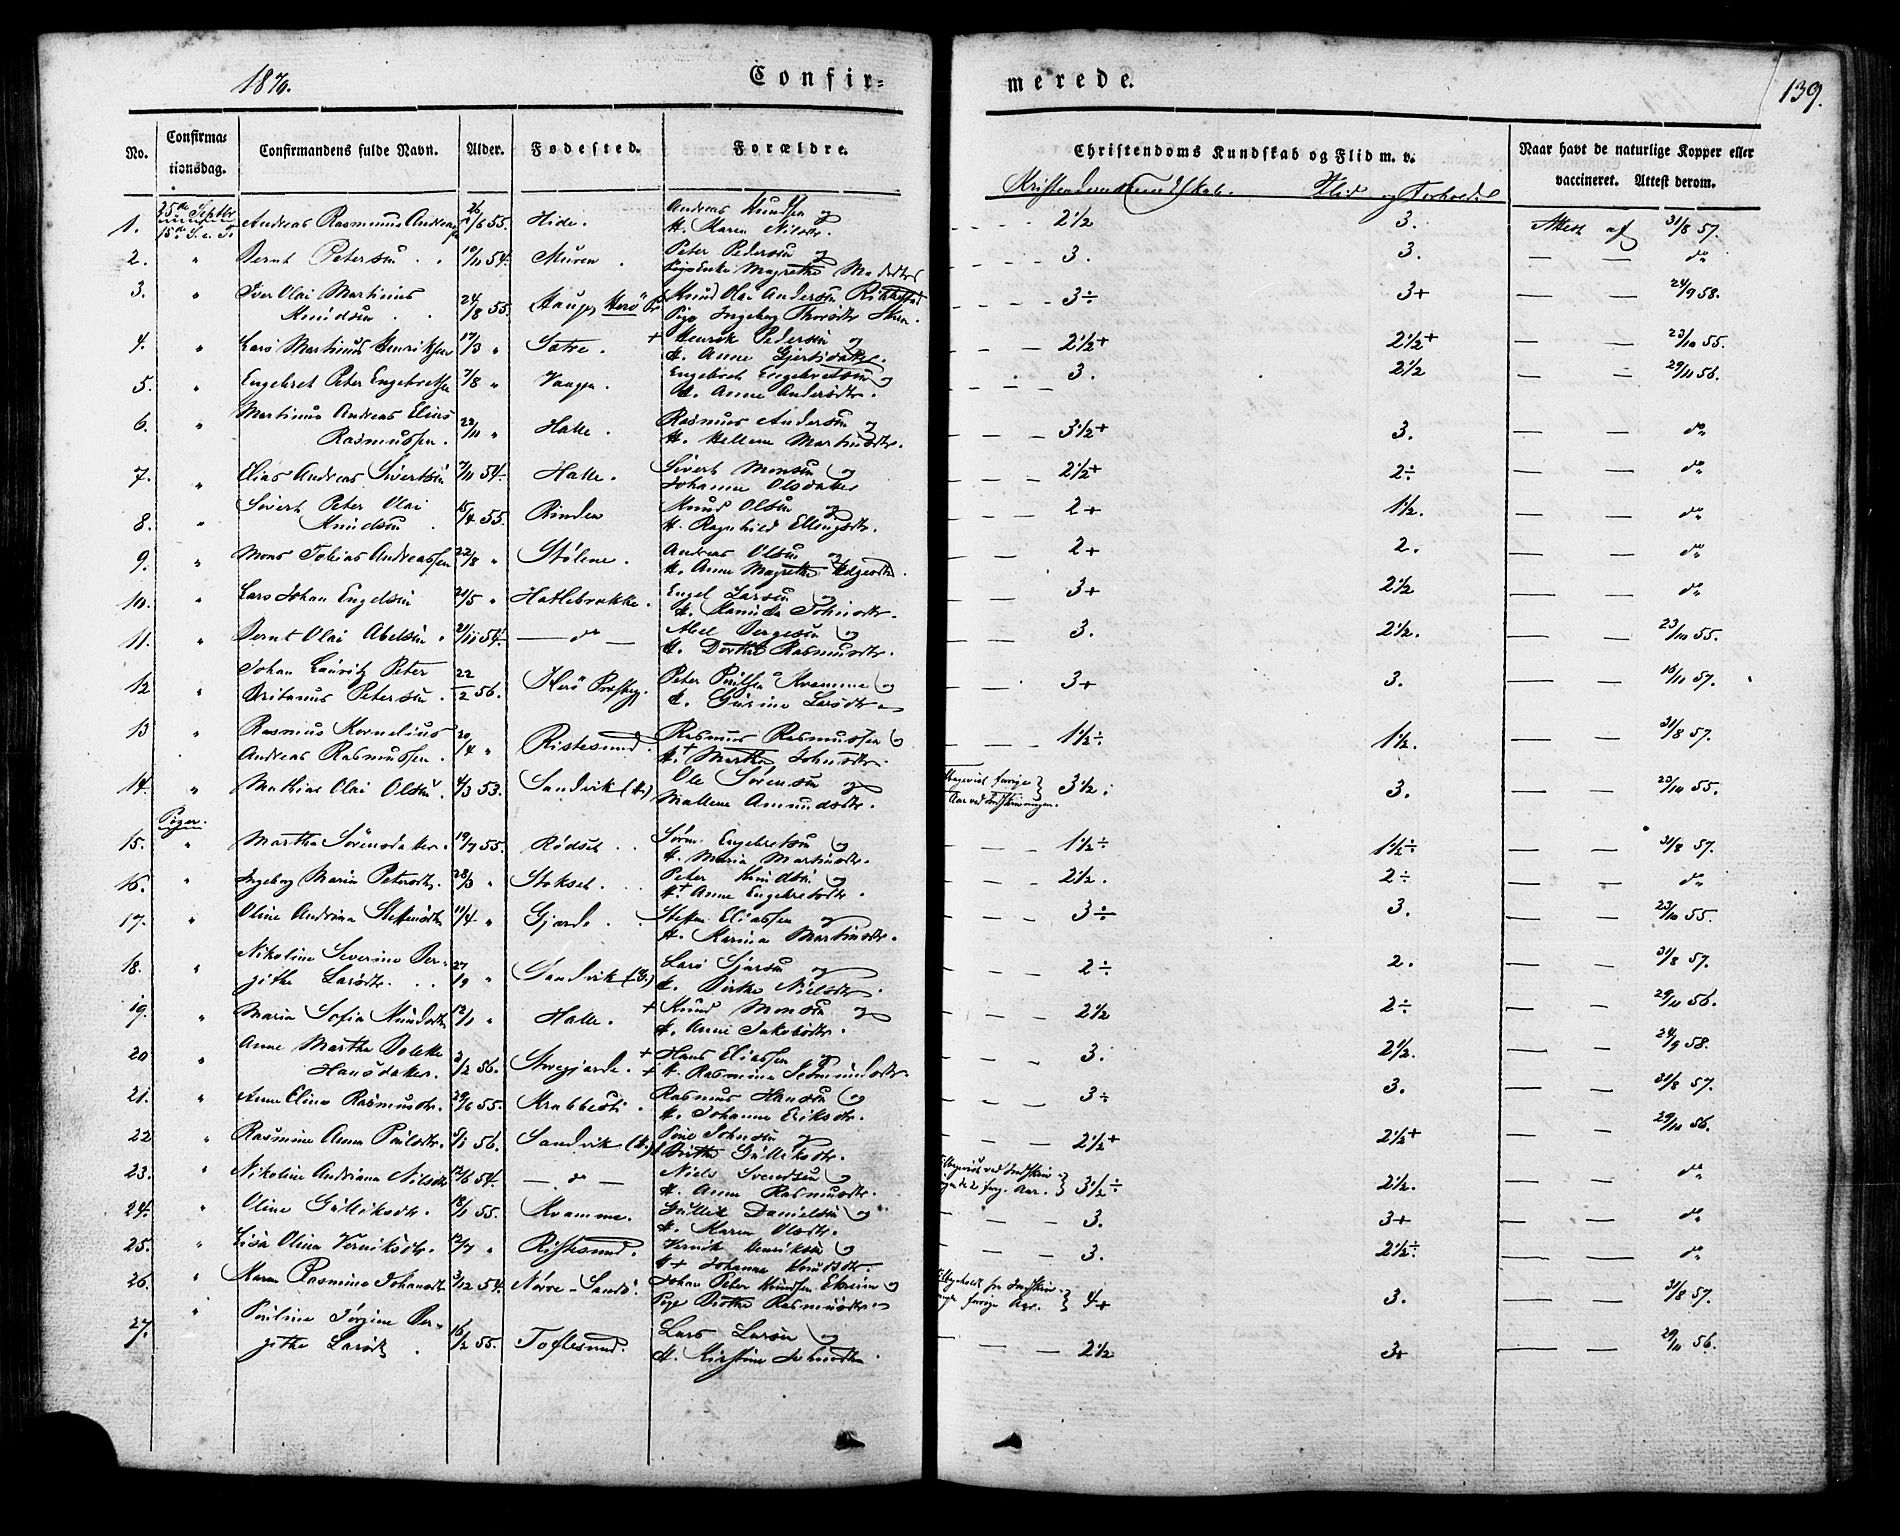 1870.
Confir=
merede.
139.
No.
Confirma=
tionsdag.
Confirmandens fulde Navn.
Alder.
Fødested.
Forældre.
Christendoms Kundskab og Flid m. v.
Naar havt de naturlige Kopper eller
vaccineret. Attest derom.
Kristendomskundskab. Flid og Forhold
25de Septbr
15de S. e. T.
1. Andreas Rasmus Andreas 26/6 55. Hide. Andreas Knudsen og
H. Maren Nilsdtr. 2½ 3. Attest af 31/8 57.
2. " Bernt Petersen 10/11 54. Muren. Peter Pedersen og
Magrethe 3. 3. do
3. " Iver Olai Martinius
Knudsen 24/8 55. Haugs Herö Pr Knud Olai Andersen
Pige Ingeborg 3÷ 3+ 24/9 58.
4. " Lars Martinus Henriksen 17/3 " Sætre. + Henrik Pedersen og
H. Anne Gjertsdatter. 2½+ 2½+ 23/10 55.
5. " Engebret Peter Engebretsen 7/8 " Vaagen. Engebret Engebretsen og
H. Anne Andersdtr. 3. 2½ 29/11 56.
6. " Martinus Andreas Elias
Rasmussen. 22/11 " Halle. Rasmus Andersen og
H. Hellene Martinsdtr. 3½+ 3. do
7. " Elias Andreas Sivertsen 7/11 54. Halle. Sivert Monsen og
Johanne Olsdatter 2½+ 2÷ do
8. " Sivert Peter Olai
Knudsen 15/4 55. Rinden Knud Olsen og
H. Ragnhild Ellingsdtr. 2+ 1½. do
9. " Mons Tobias Andreassen 22/8 " Stölene. Andreas Olsen og
H. Anne Magrethe 2+ 2. do
10. " Lars Johan Engelsen 20/5 " Hatlebrække. Engel Larsen og
H. Johnsdtr. 3+ 2½ do
11. " Bernt Olai Abelsen 21/11 54. — do — Abel Børgesen og
H. Dorthe Rasmusdtr. 3. 2½. 23/10 55.
12. " Johan Lauritz Peter
Petersen 22/2 56. Herö Præstegj. Peter Kvamme og
H. Gurine Larsdtr 3+ 3. 16/10 57.
13 Rasmus Kornelius
Andreas Rasmussen. 20/4 " Ristesund. Rasmus Rasmussen og
H.+ Martha Johnsdtr. 1½÷ 1½. 31/8 57.
14. " Mathias Olai Olsen 4/3 53. Sandvik (H.) Ole Sørensen og
Mallene Amundsdtr. 3½. 3. 23/10 55.
Piger.
15. " Martha Sörensdatter. 19/7 55. Rødset. Sørn Engebretsen og
H. Maria Martinsdtr. 1½÷ 1½÷ 31/8 57.
16. " Ingeborg Maria Petersdtr. 28/3 " Stokset. Peter Knudsen og
H.+ Anne Engebretsdtr. 2½. 2÷ do
17. " Oline Andrina Steffensdtr. 11/4 " Gjærde. Steffen Eliassen og
H. Karina Martinsdtr. 3÷ 3. 23/10 55.
18. " Nikoline Severine Ber-
githe Larsdtr. 27/9 " Sandvik (H.) Lars og
H. Birthe Nielsdtr. 2÷ 2. 31/8 57.
19. " Maria Sofia Knudsdtr. 12/11 " Halle. + Knud Monsen og
H. Anne Jakobsdtr. 2½ 2÷ 29/11 56.
20 " Anne Martha Bolette
Hansdatter. 2/2 56. + Hans Eliassen og
+ H. Rasmine 3. 2½. 24/9 58.
21. " Anne Elina Rasmusdtr. 29/6 55. Krabbesti. Rasmus Hansen og
H. Johanne Eriksdtr. 3÷ 3. 31/8 57.
22 " Rasmine Anna Paulsdtr. 5/1 56. Sandvik (H.) Johnsen og
Brithe Gulliksdtr. 2½+ 2½+ 29/11 56.
23. " Nikoline Andriana Nilsdtr 12/6 54. — do — Niels Svendsen og
H. Anne Rasmusdtr. 3½÷ 2½. do
24. " Oline Gulliksdtr. 18/1 55. Kvamme. Gullik Danielsen og
H. Maren Olsdtr. 3. 3+ do
25. " Lisa Olina Henriksdtr. 12/7 " Ristesund. Henrik Henriksen og
H+ Johanna Knudsdtr. 3. 2½÷ do
26. " Maren Rasmine Johansdtr 3/12 54. Nørre-Sandö. Johan Peter Knudsen Ekrem og
Pige Birthe Rasmusdtr. 4+ 3. 31/8 57.
27. " Pauline Jørgine Ber-
githe Larsdtr. 16/2 55. Toftesund. Lars Larsen og
H. Kirstine Johnsdtr. 2½ 3+ 29/11 56.